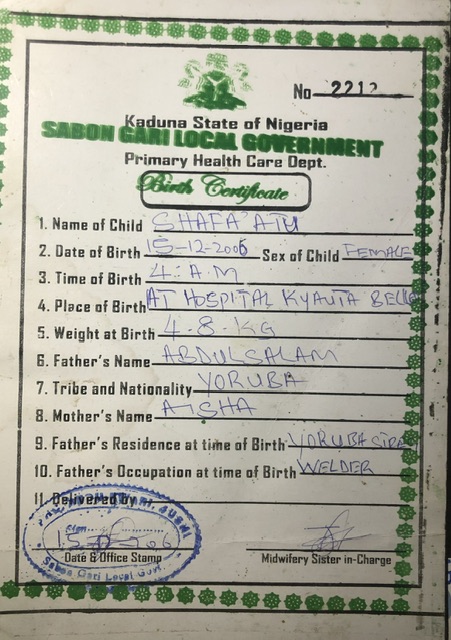 No 2212
Kaduna State of Nigeria
SABON GARI LOCAL GOVERNMENT
Primary Health Care Dept.
Birth Certificate
1. Name of Child SHAFA'ATU
2. Date of Birth 15-12-2006 Sex of Child FEMALE
3. Time of Birth 4: A.M
4. Place of Birth AT HOSPITAL KYAUTA BELLO
5. Weight at Birth 4.8 KG
6. Father's Name ABDULSALAM
7. Tribe and Nationality YORUBA
8. Mother's Name AISHA
9. Father's Residence at time of Birth YORUBA
10. Father's Occupation at time of Birth WELDER
11. Delivered by
Sign
Date & Office Stamp
Midwifery Sister in-Charge
Sabon Gari Local Govt.